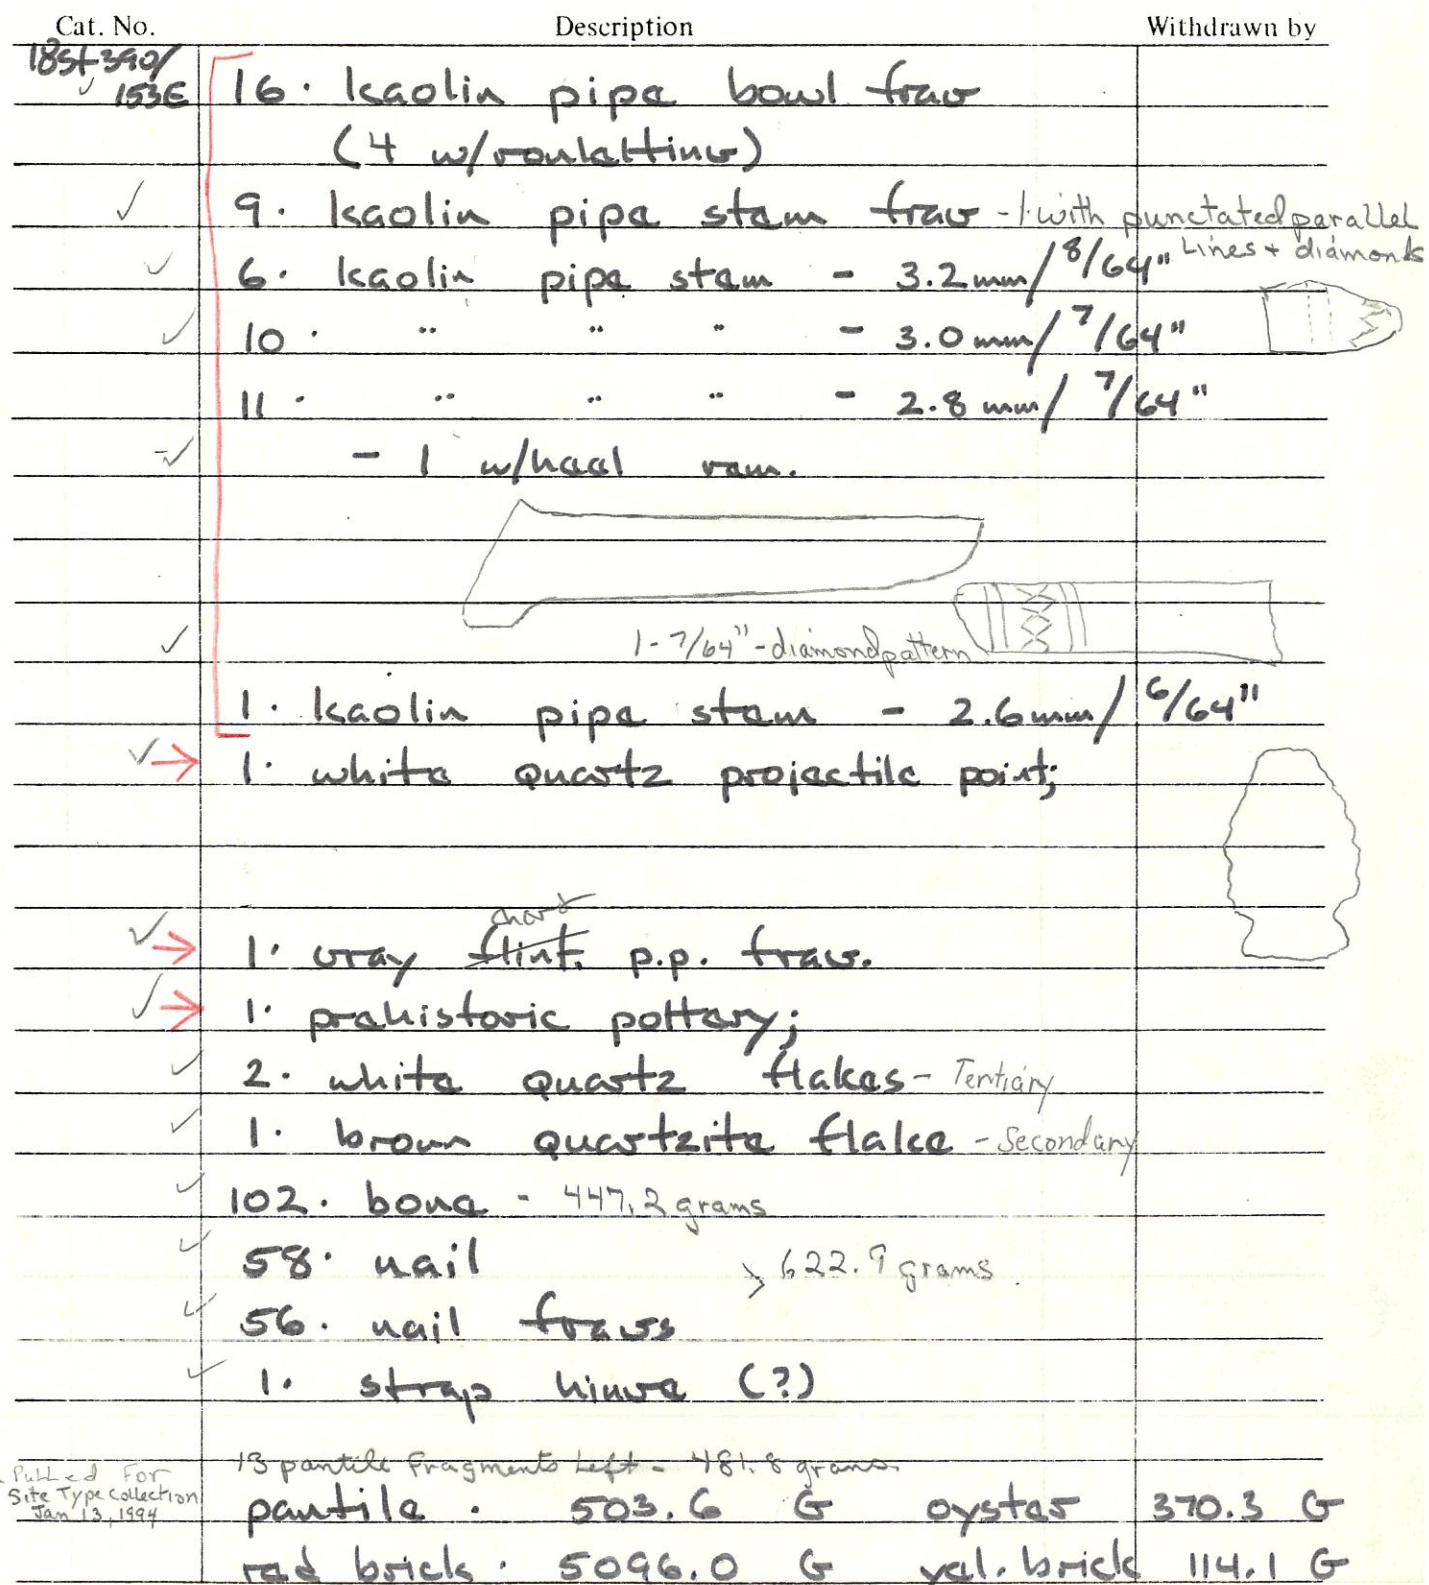 Cat. No. Description Withdrawn by
18St390/
153E 16. kaolin pipe bowl frag
(4 w/roulatting)
9. kaolin pipe stem frag - 1. with punctated parallel
Lines + diamonds
6. kaolin pipe stem - 3.2mm/8/64"
10. " " " - 3.0mm/7/64"
11. " " " - 2.8 mm/7/64"
- 1 w/heel rem.
1-7/64"-diamond pattern
1. kaolin pipe stem - 2.6mm/6/64"
1. white quartz projectile point;
chert
1. gray flint. p.p. frag.
1. prehistoric pottery;
2. white quartz flakes - Tertiary
1. brown quartzite flake - Secondary
102. bone - 447.2 grams
58. nail
> 622.9 grams
56. nail frags
1. strap hinge (?)
13 pantile fragments Left - 481.8 grams
Pulled For
Site Type Collection
Jan 13, 1994
pantile . 503.6 G oyster 370.3 G
red brick . 5096.0 G yel. brick 114.1 G